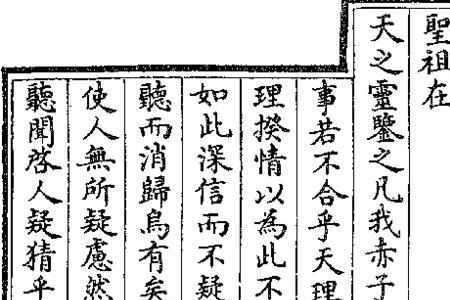 聖祖在
天之靈鑒之凡我赤子
事若不合乎天理
理揆情以為此不
如此深信而不疑
聽而消歸烏有矣
使人無所疑慮然
聽聞啓人疑猜乎